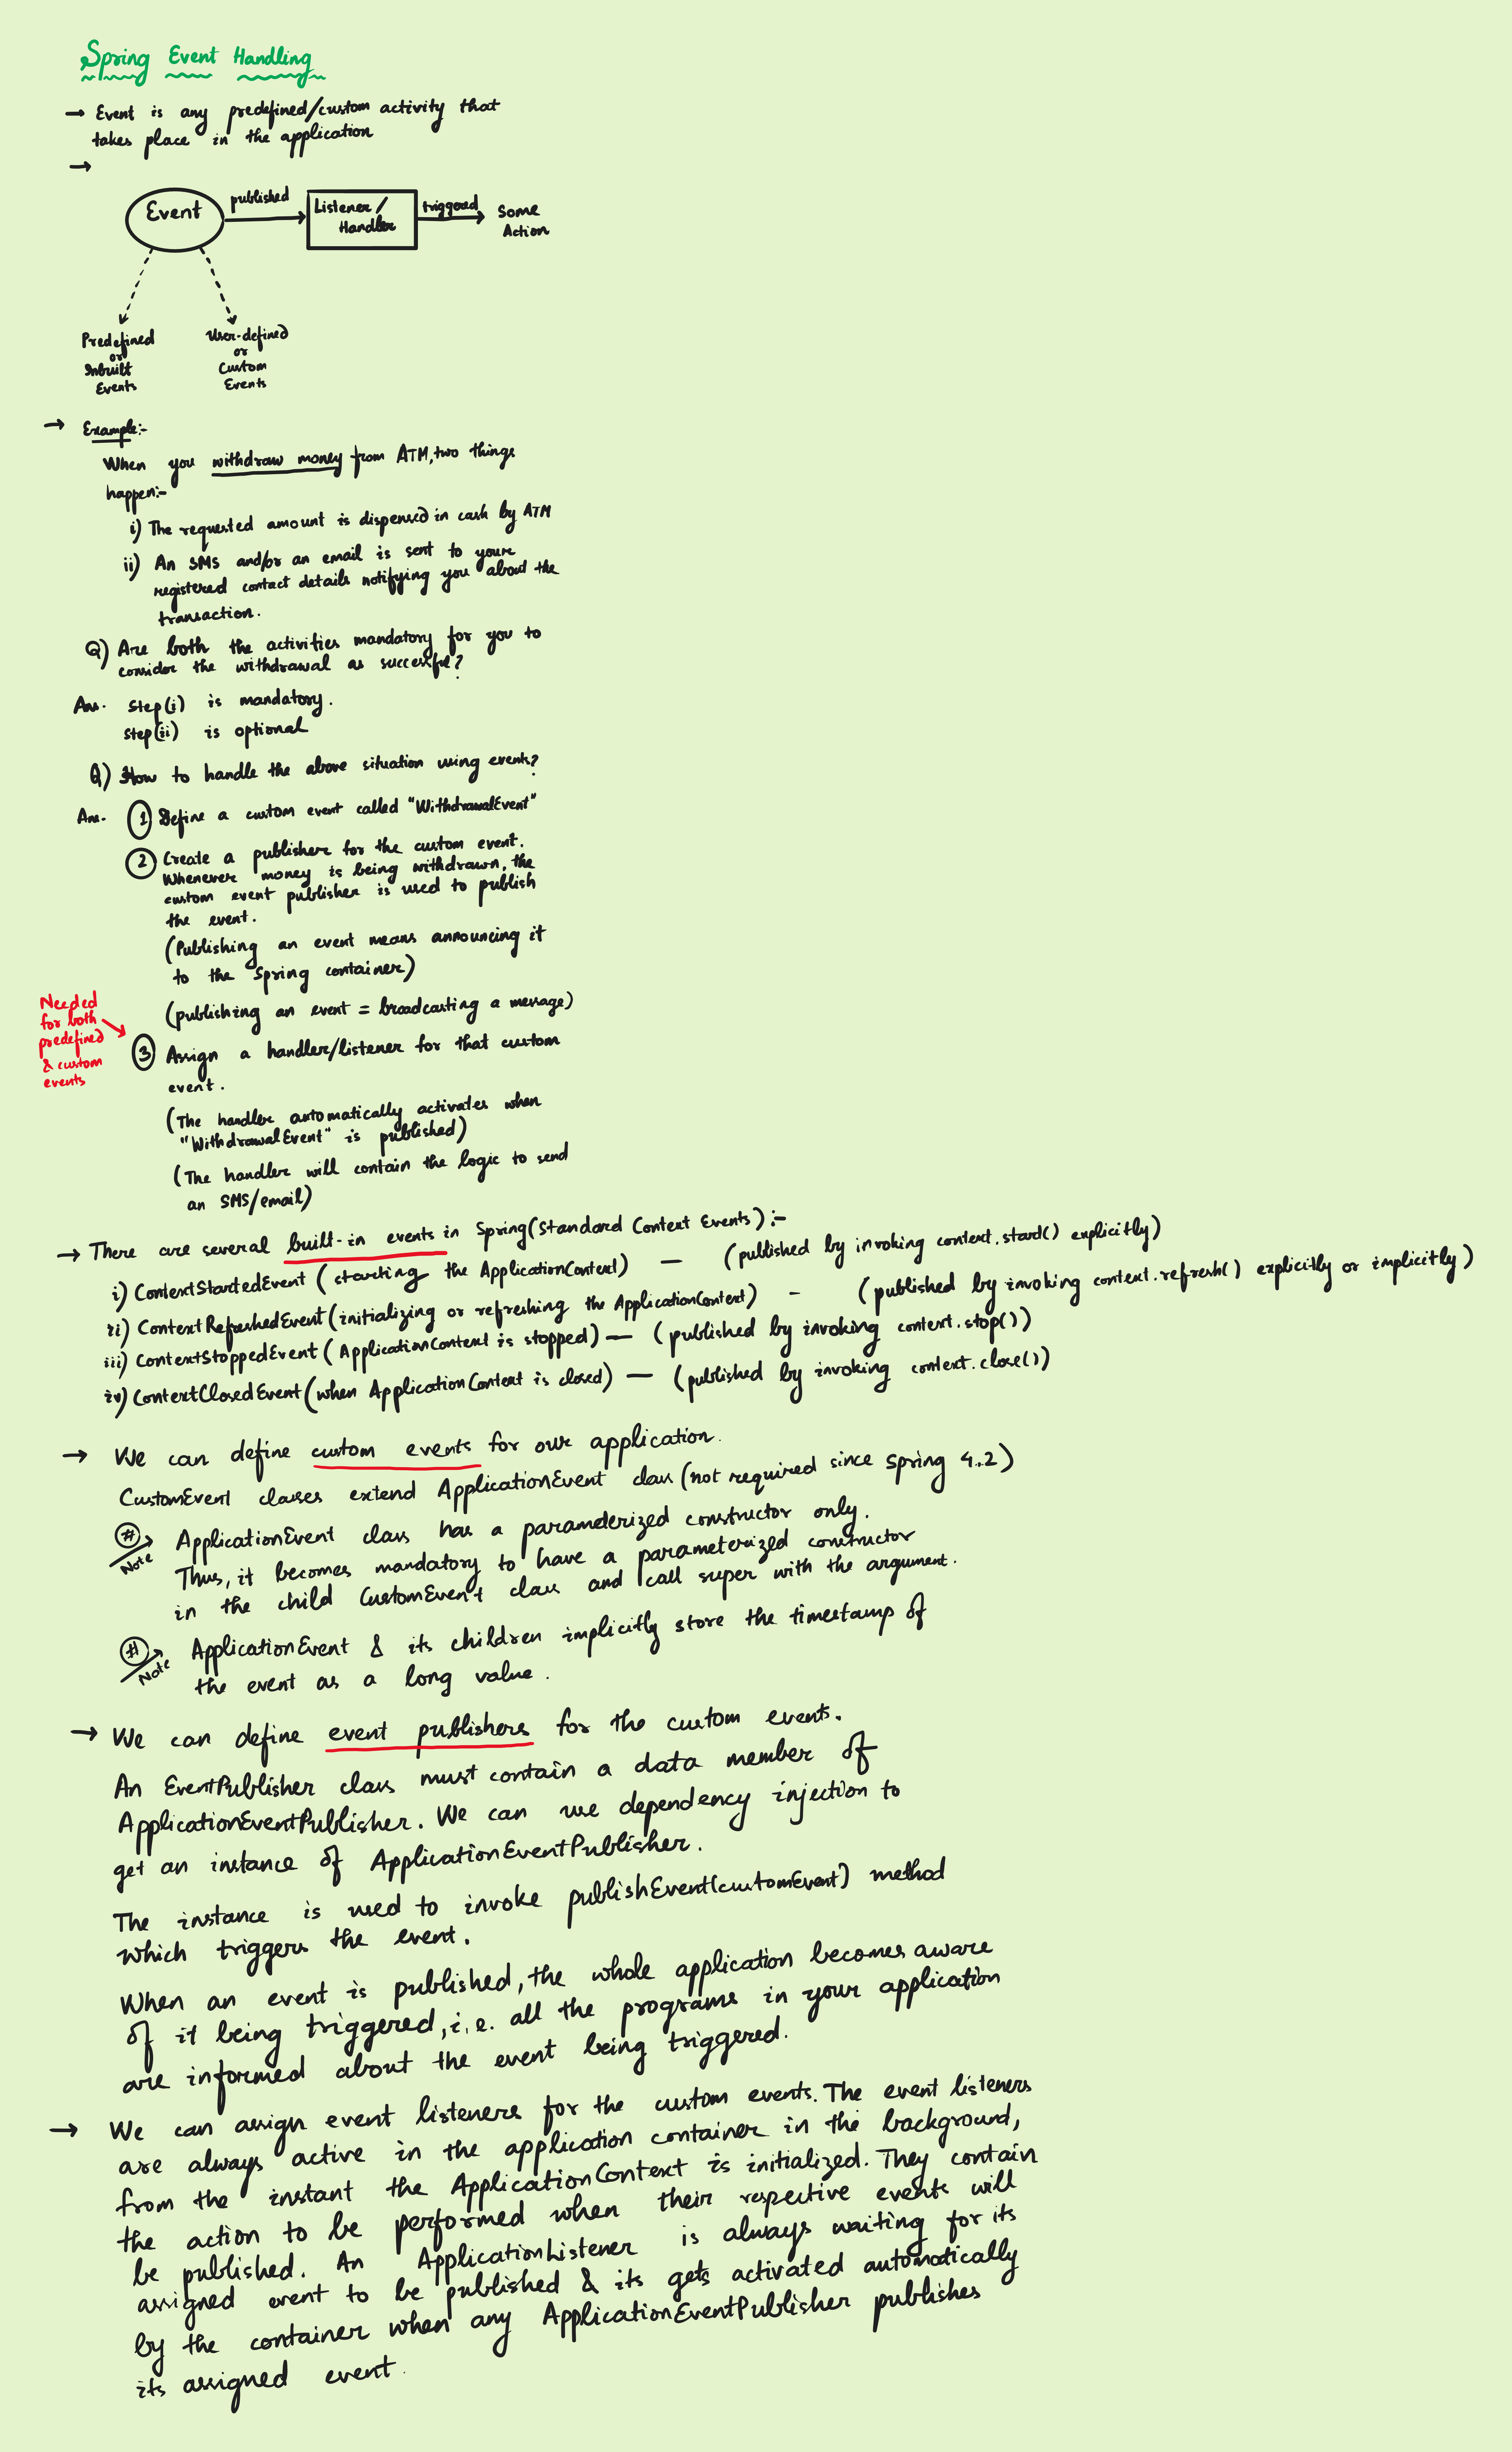 Spring Event Handling
→ Event is any predefined/custom activity that
takes place in the application
→
Event
published
Listener/
Handler
triggered
Some
Action
Predefined
or
Inbuilt
Events
User-defined
or
Custom
Events
→ Example:-
When you withdraw money from ATM, two things
happen:-
i) The requested amount is dispensed in cash by ATM
ii) An SMS and/or an email is sent to your
registered contact details notifying you about the
transaction.
Q) Are both the activities mandatory for you to
consider the withdrawal as successful?
Ans. Step(i) is mandatory.
Step(ii) is optional
Q) How to handle the above situation using events?
Ans. 1 Define a custom event called "WithdrawalEvent"
2 Create a publisher for the custom event.
Whenever money is being withdrawn, the
custom event publisher is used to publish
the event.
(Publishing an event means announcing it
to the Spring container)
(publishing an event = broadcasting a message)
Needed
for both
predefined
& custom
events
3 Assign a handler/listener for that custom
event.
(The handler automatically activates when
"WithdrawalEvent" is published)
(The handler will contain the logic to send
an SMS/email)
→ There are several built-in events in Spring(Standard Context Events):-
i) ContextStartedEvent (starting the ApplicationContext) — (published by invoking context.start() explicitly)
ii) ContextRefreshedEvent (initializing or refreshing the ApplicationContext) - (published by invoking context.refresh() explicitly or implicitly)
iii) ContextStoppedEvent (ApplicationContext is stopped) — (published by invoking context.stop())
iv) ContextClosedEvent (when ApplicationContext is closed) — (published by invoking context.close())
→ We can define custom events for our application.
CustomEvent classes extend ApplicationEvent class (not required since Spring 4.2)
# Note ApplicationEvent class has a parameterized constructor only.
Thus, it becomes mandatory to have a parameterized constructor
in the child CustomEvent class and call super with the argument.
# Note ApplicationEvent & its children implicitly store the timestamp of
the event as a long value.
→ We can define event publishers for the custom events.
An EventPublisher class must contain a data member of
ApplicationEventPublisher. We can use dependency injection to
get an instance of ApplicationEventPublisher.
The instance is used to invoke publishEvent(customEvent) method
which triggers the event.
When an event is published, the whole application becomes aware
of it being triggered, i.e. all the programs in your application
are informed about the event being triggered.
→ We can assign event listeners for the custom events. The event listeners
are always active in the application container in the background,
from the instant the ApplicationContext is initialized. They contain
the action to be performed when their respective events will
be published. An ApplicationListener is always waiting for its
assigned event to be published & its gets activated automatically
by the container when any ApplicationEventPublisher publishes
its assigned event.